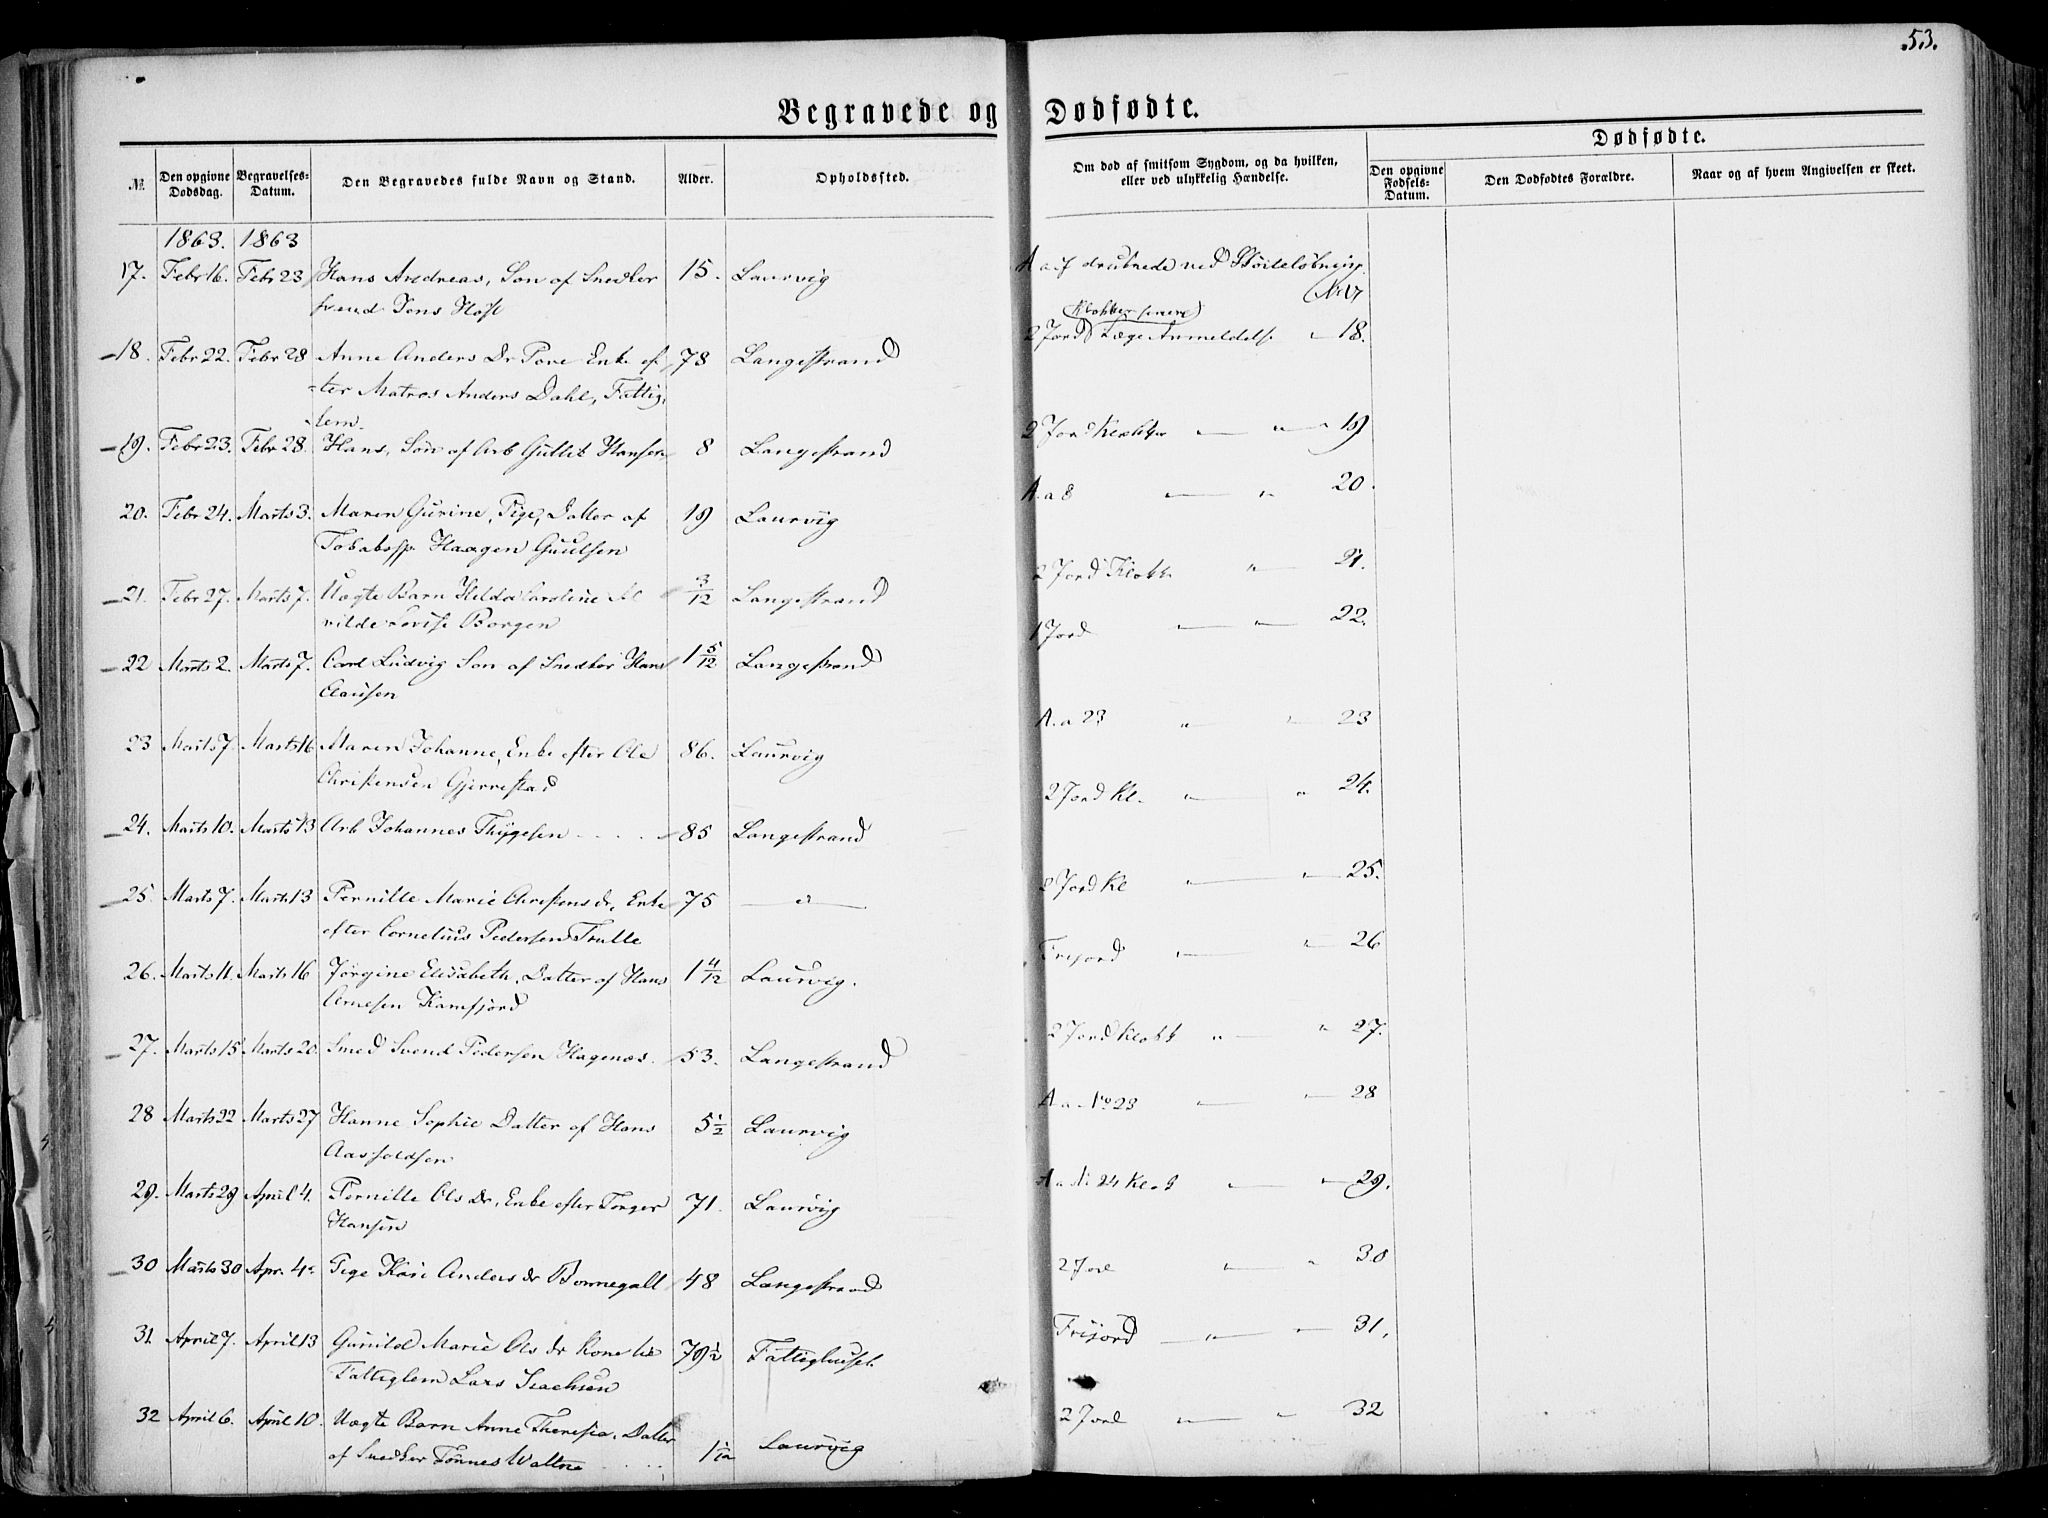 53.
Begravede og Dødfødte.
Dødfødte.
№
Den opgivne Dødsdag.
Begravelses-Datum.
Den Begravedes fulde Navn og Stand.
Alder.
Opholdssted.
Om død af smitsom Sygdom, og da hvilken, eller ved ulykkelig Hændelse.
Den opgivne Fødsels-Datum.
Den Dødfødtes Forældre.
Naar og af hvem Angivelsen er skeet.
1863. 1863
17. Febr 16. Febr 23 Hans Andreas, Søn af Snedker 15. Laurvig A a 8 druknede ved
svend Jens Høst No 17
Klokker
18. Febr 22. Febr 28 Anne Anders Dr Enke ef 78 Langestrand 2 Jord Læge Anmeldelse " 18.
ter Matros Anders Dahl, Fattig,
lem.
19. Febr 23. Febr 28. Hans, Søn af Arb Gullik Hansen 8 Langestrand 2 Jord Klokker " " 19
20. Febr 24. Marts 3. Maren Gurine, Pige, Datter af 19 Laurvig A. a 8 " " 20.
Haagen Guulsen
21. Febr 27. Marts 7. Uægte Barn Hilda Caroline Al 3/12 Langestrand 2 Jord Klokk " 21.
vilde Lovise Borgen
22 Marts 2. Marts 7. Carl Ludvig Søn af Snedker Hans 1 5/12 Langestrand 1 Jord " " 22.
Clausen
23 Marts 7. Marts 16 Maren Johanne, Enke efter Ole 86. Laurvig A. a 23 " " 23
Christensen Gjerrestad
24. Marts 10. Marts 13 Arb Johannes Thygesen 85 Langestrand 2 Jord Kl. " " 24.
25. Marts 7. Marts 13 Pernille Marie Christens dr, Enke 75 " 2 Jord Kl " " 25.
efter Cornelius Pedersen Trulle
26. Marts 11. Marts 16 Jørgine Elisabeth, Datter af Hans 1 4/12 Laurvig. Frijord " " 26
Arnesen Kamfjord
27. Marts 15 Marts 20. Smed Svend Pedersen Hagenæs. 53. Langestrand 2 Jord Klokk " " 27.
28 Marts 22 Marts 27 Hanne Sophie Datter af Hans 5 1/2 Laurvig A a No 23 " " 28
Aasoldsen
29. Marts 29 April 4. Pernille Ols Dr, Enke efter Torger 71. Laurvig A a No 24 Klok " " 29.
Hansen
30 Marts 30 Apr. 4. Pige Kari Anders dr Bonnegall 48 Langestrand 2 Jord " " 30
31 April 7. April 13 Gunild Marie Ols dr Kone til 79 1/2 Fattighuset Frijord " " 31.
Fattiglem Lars Isachsen
32 April 6. April 10. Uægte Barn Anne Theresia, Datter 2 Jord " " 32
af Snedker Tønnes Waltne 1 1/12 Laurvig